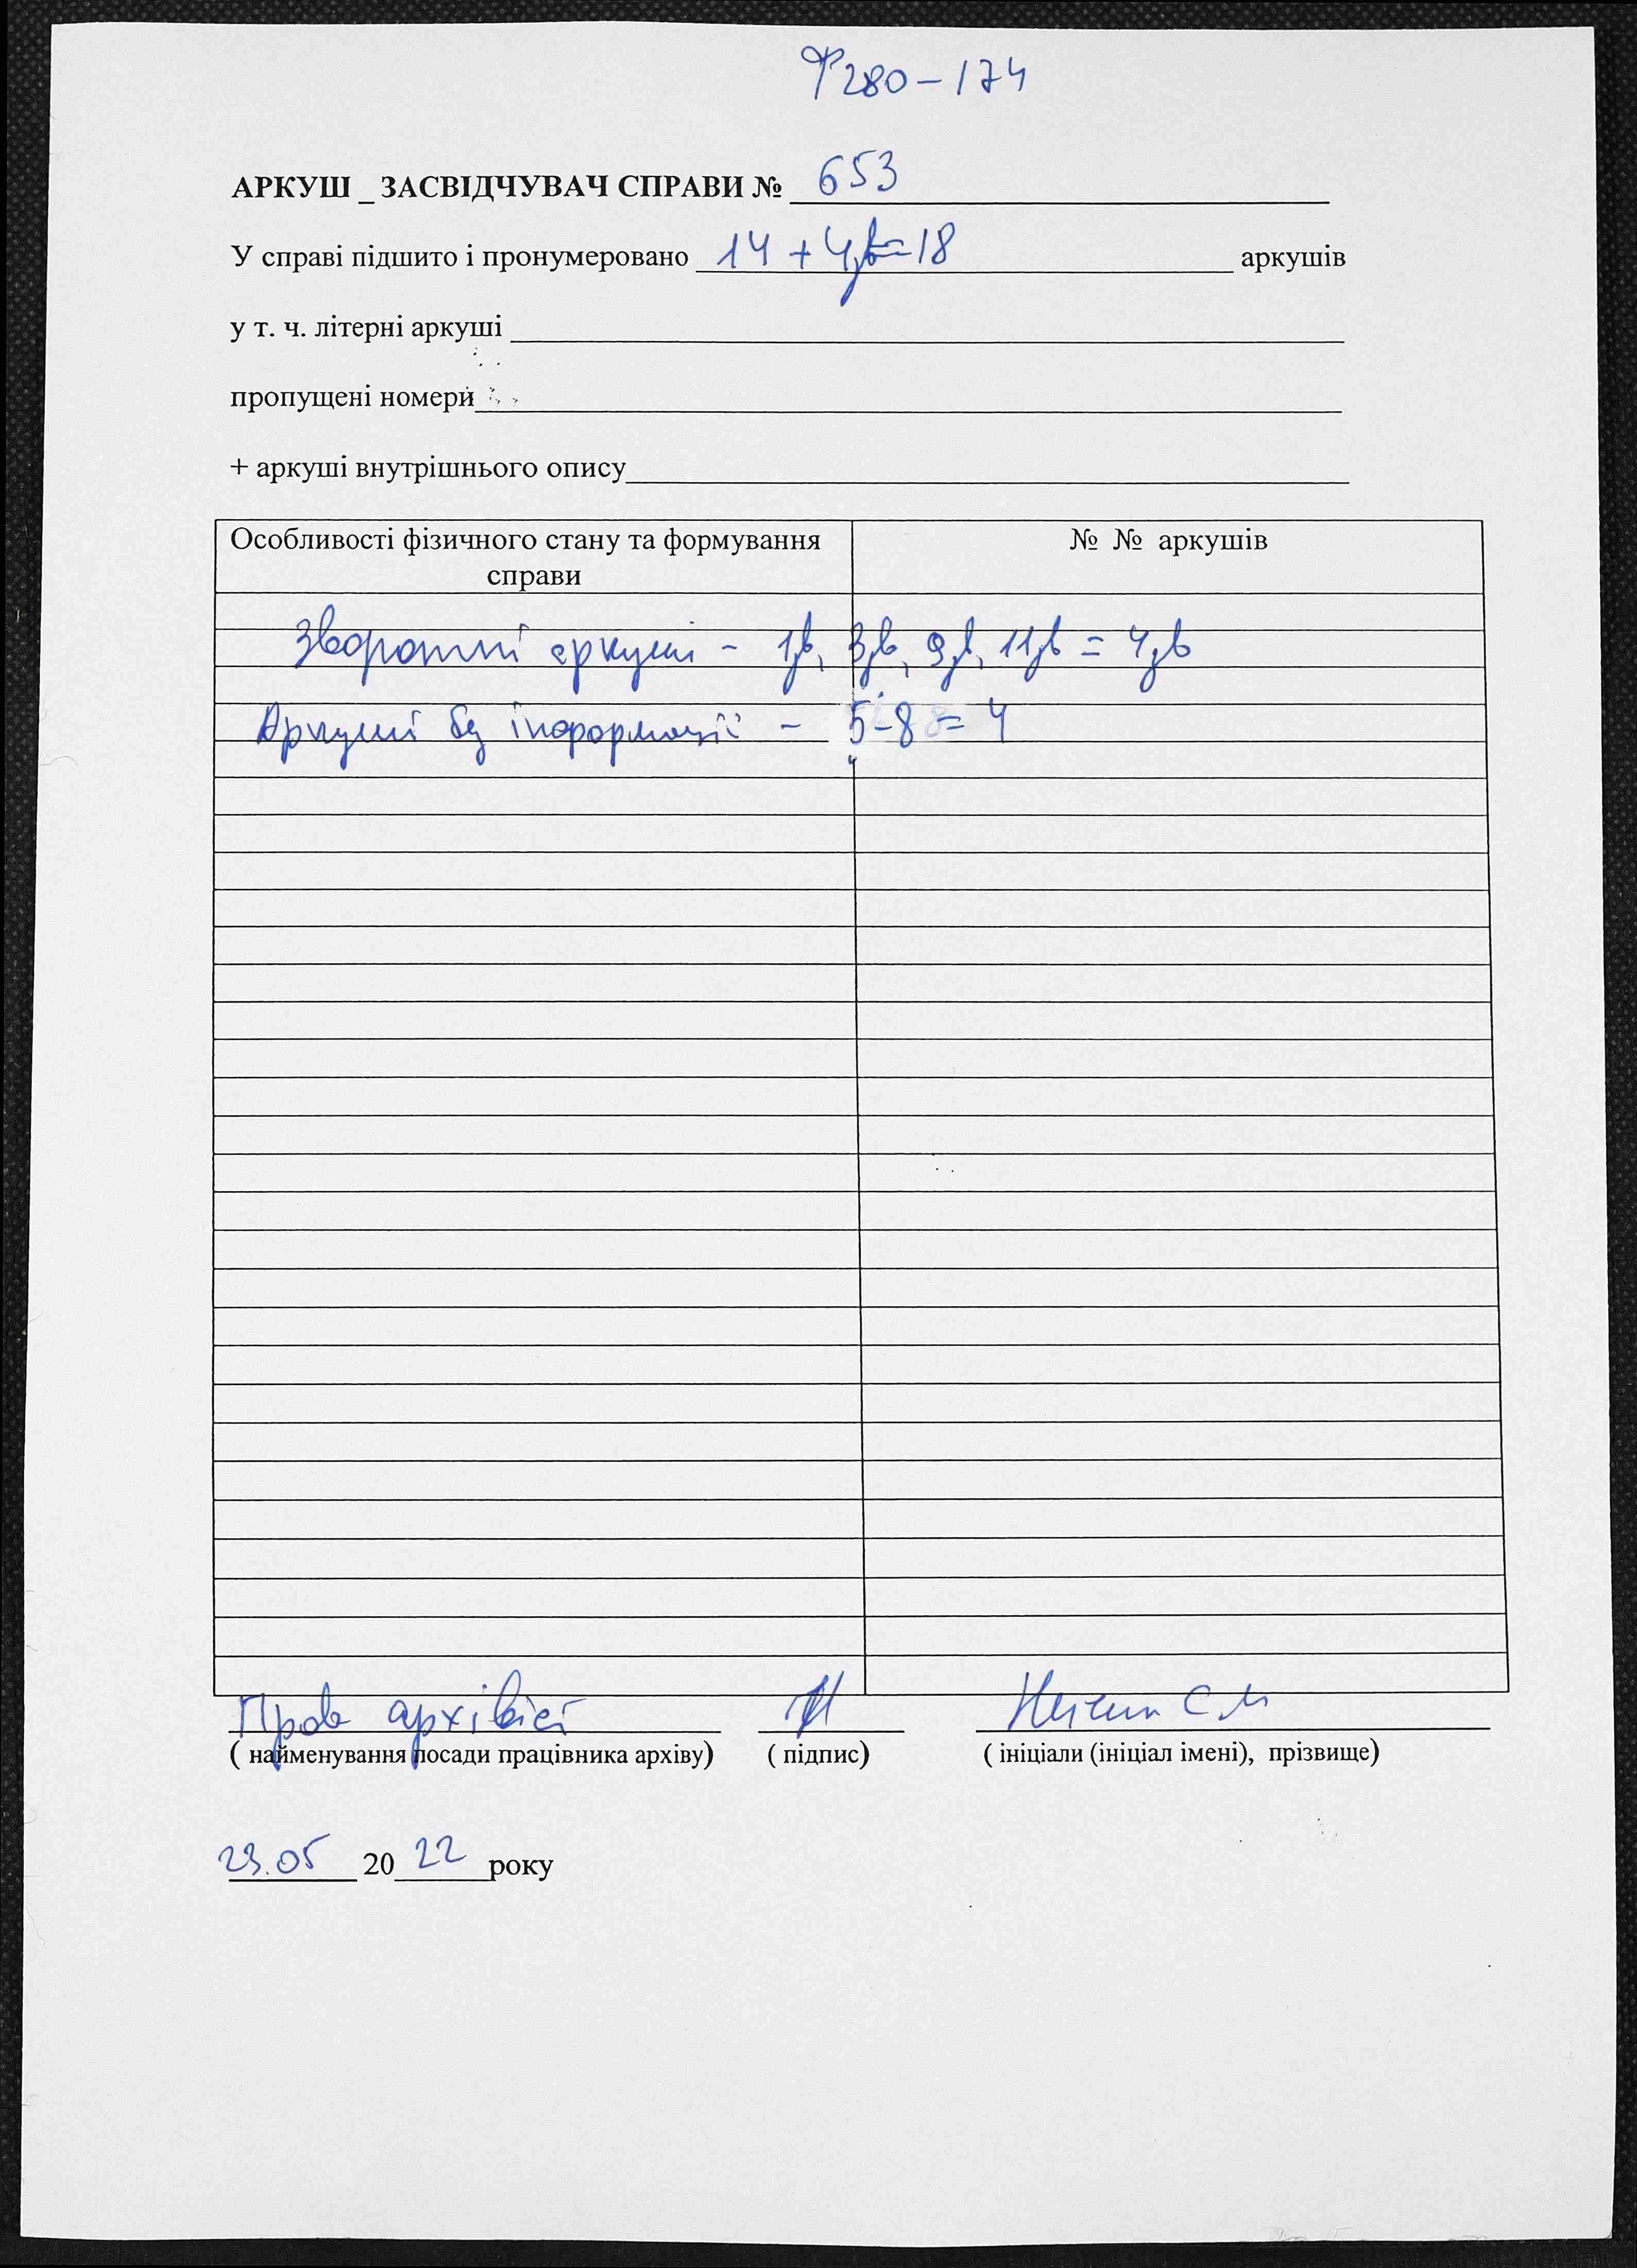 Ф 280-174
АРКУШ _ ЗАСВІДЧУВАЧ СПРАВИ № 653
У справі підшито і пронумеровано 14 + 4зв=18 аркушів
у т. ч. літерні аркуші
пропущені номери
+ аркуші внутрішнього опису
Особливості фізичного стану та формування справи
№ № аркушів
Зворотні аркуші - 1зв, 3зв, 9зв, 11зв = 4зв
Аркуші без інформації - 5-8 = 4
Пров архівіст
С М
( найменування посади працівника архіву) ( підпис) ( ініціали (ініціал імені), прізвище)
23.05 2022 року